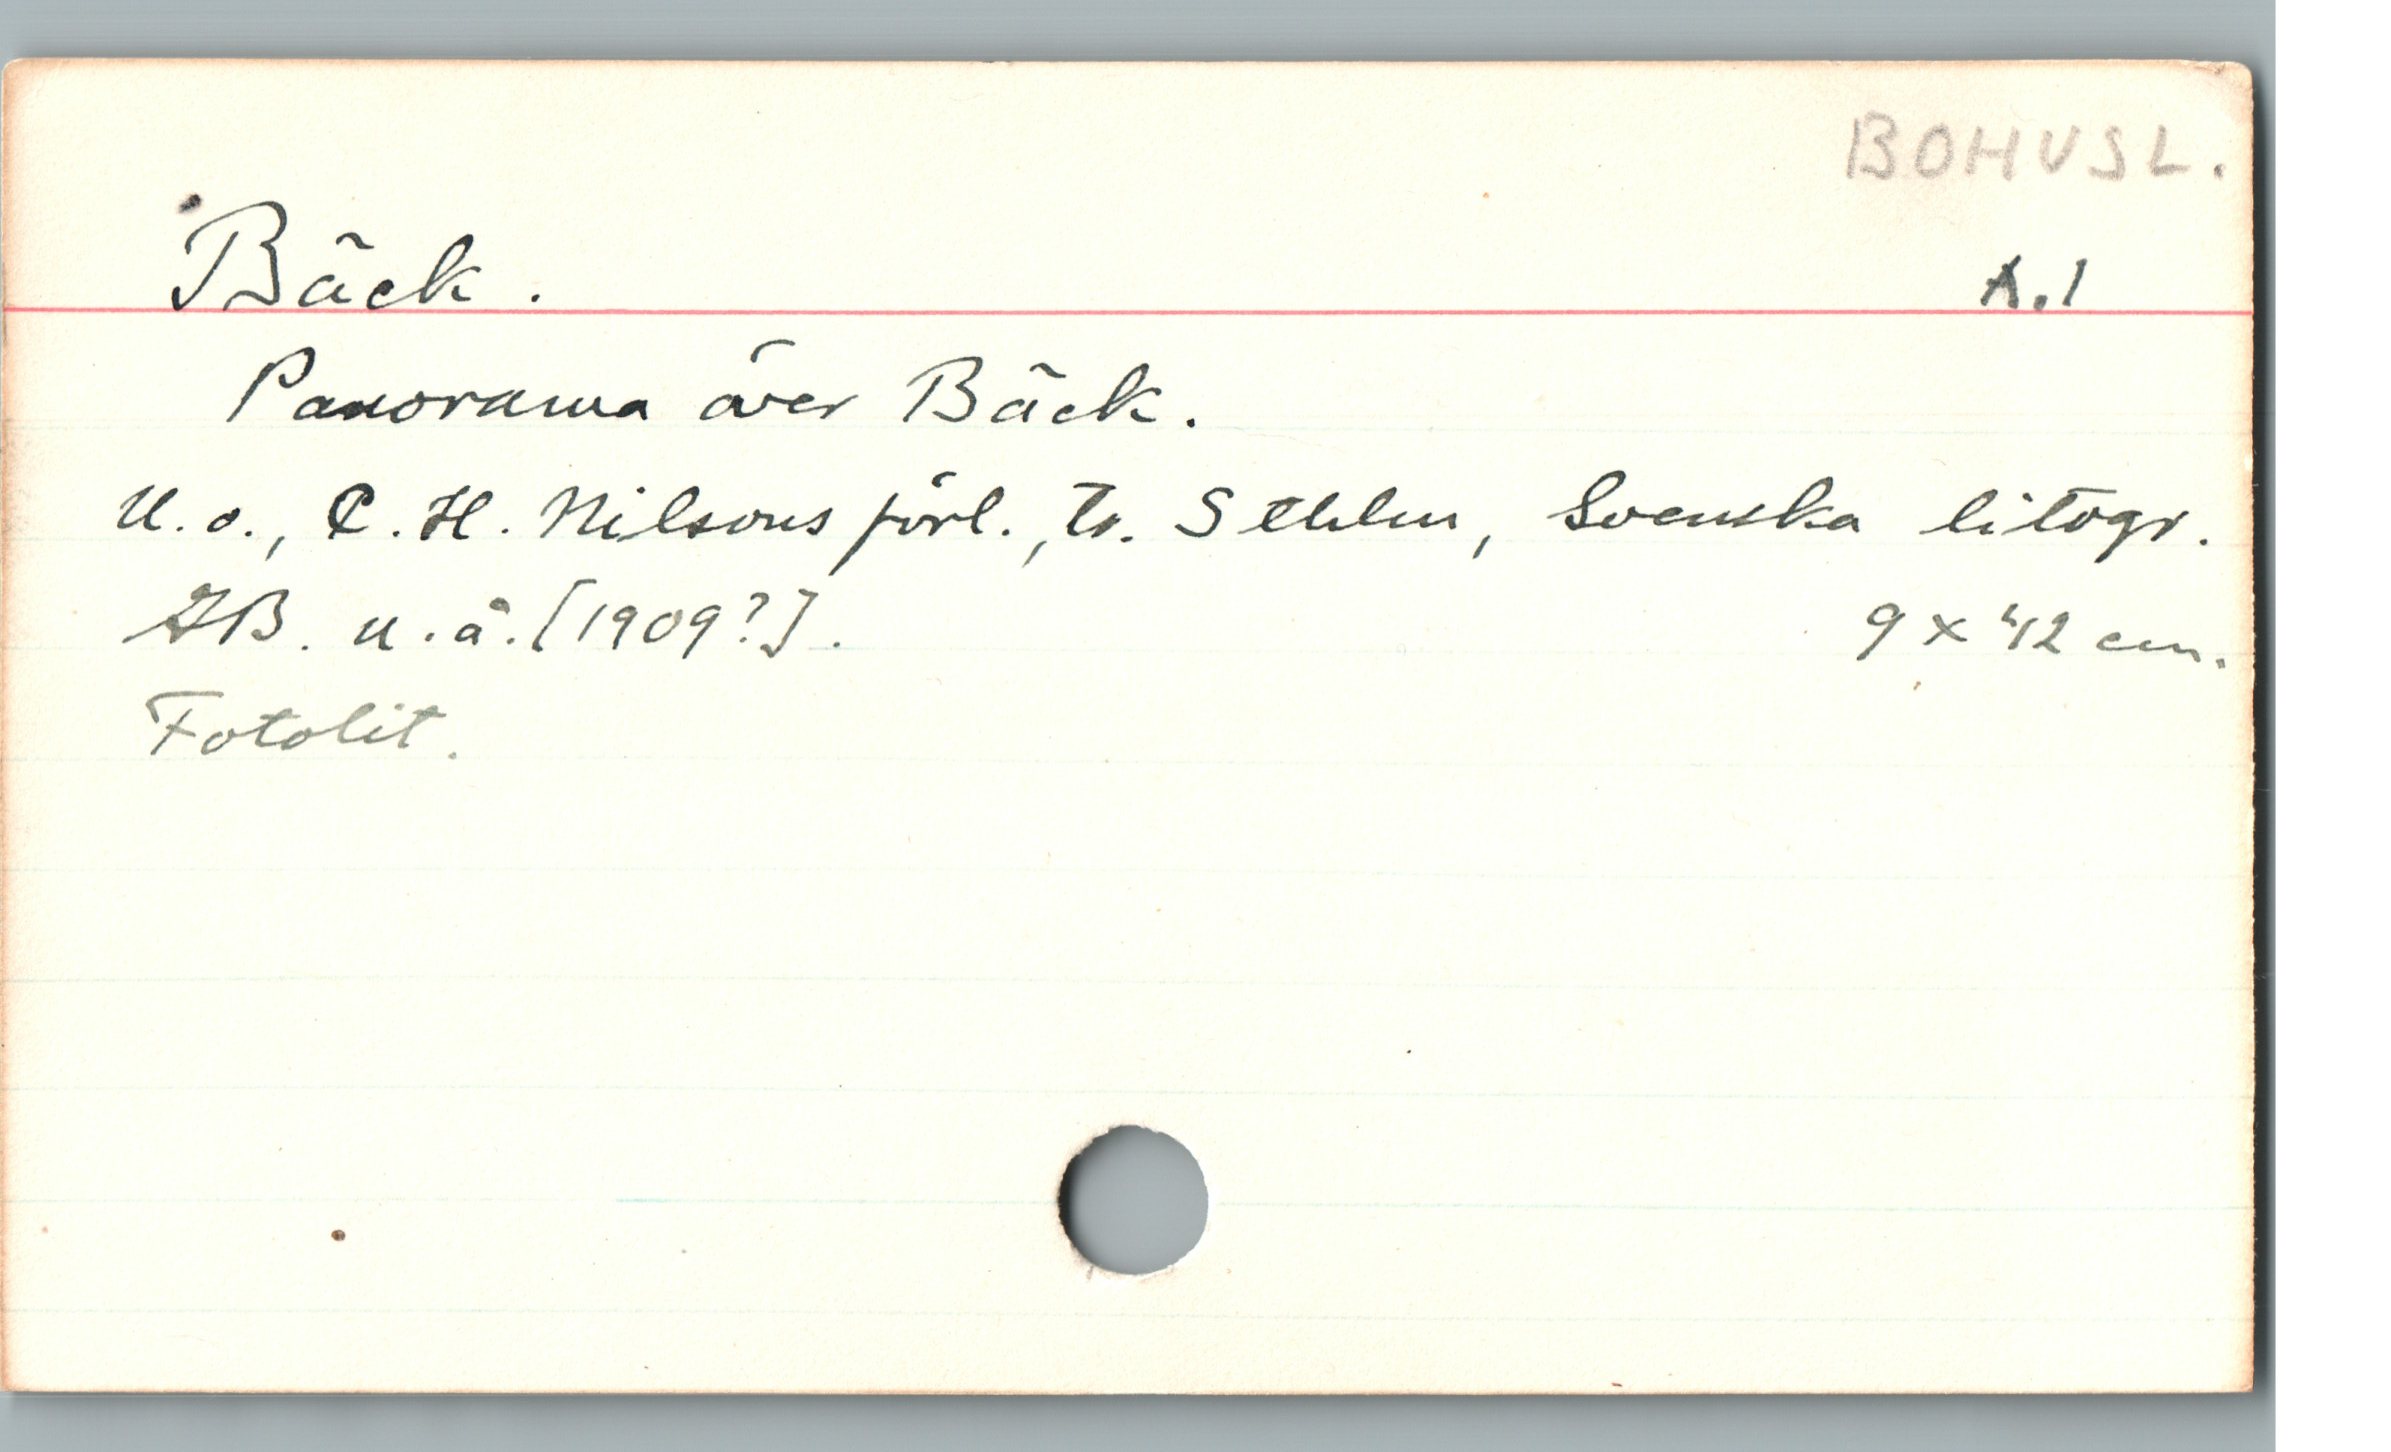 BOHUSL.
Bäck. A.1
Panorama över Bäck.
U.o., C.H. Nilsons förl., tr. Sthlm, Svenska litogr.
AB. u.å. [1909?]. 9 x 42 cm.
Fotolit.